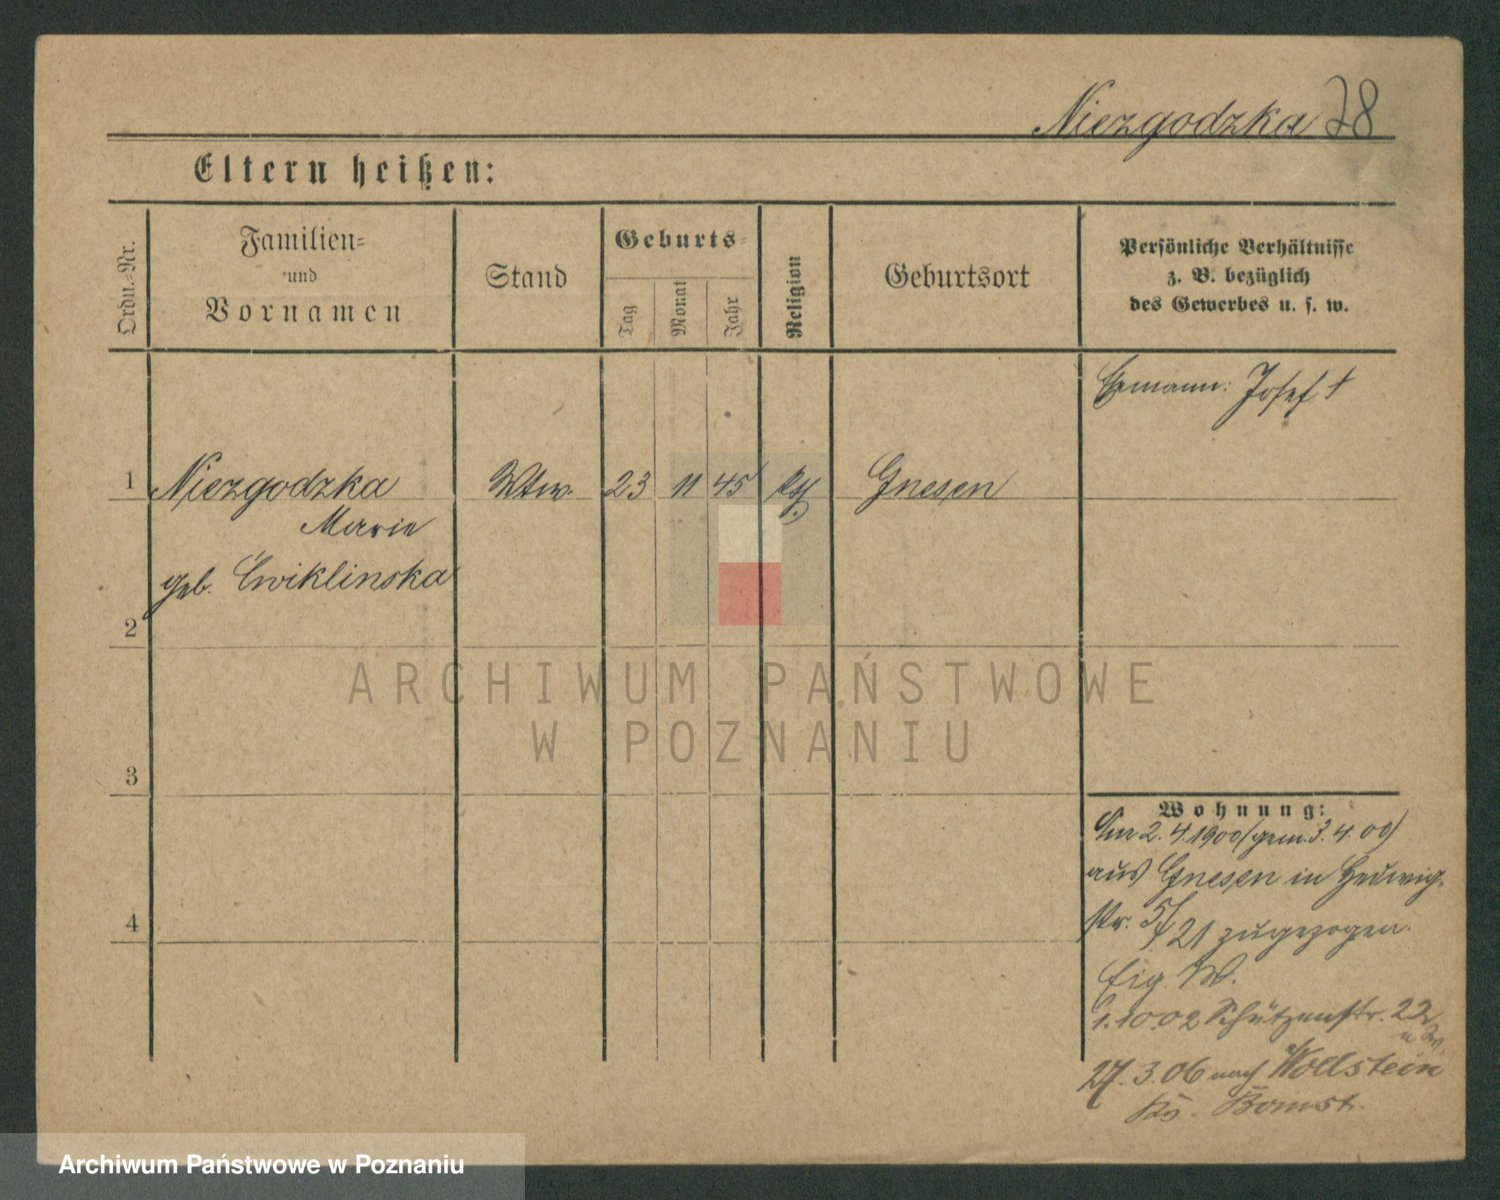 Niezgodzka 78
Eltern heißen:
Ordn.-Nr.
Familien-
und
Vornamen
Stand
Geburts-
Tag
Monat
Jahr
Religion
Geburtsort
Persönliche Verhältnisse
z. B. bezüglich
des Gewerbes u. s. w.
Ehemann: Josef †
1 Niezgodzka Wtw. 23 11 45 Gnesen
Marie
geb. Ćwiklinska
2
3
4
Wohnung:
Am 2.4.1900 (gem. 3.4.00)
aus Gnesen in Hedwig-
str. 5/
21 zugezogen.
Eig. W.
1.10.02 Schützenstr. 22
27.3.06 nach Wollstein
Ks. Bomst.
ARCHIWUM PAŃSTWOWE
W POZNANIU
Archiwum Państwowe w Poznaniu